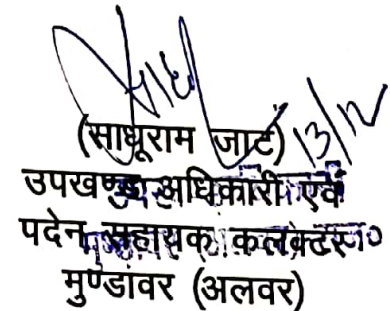 (साधूराम जाट) 13/12
उपखण्ड अधिकारी एवं
पदेन सहायक कलक्टर
मुण्डावर (अलवर)